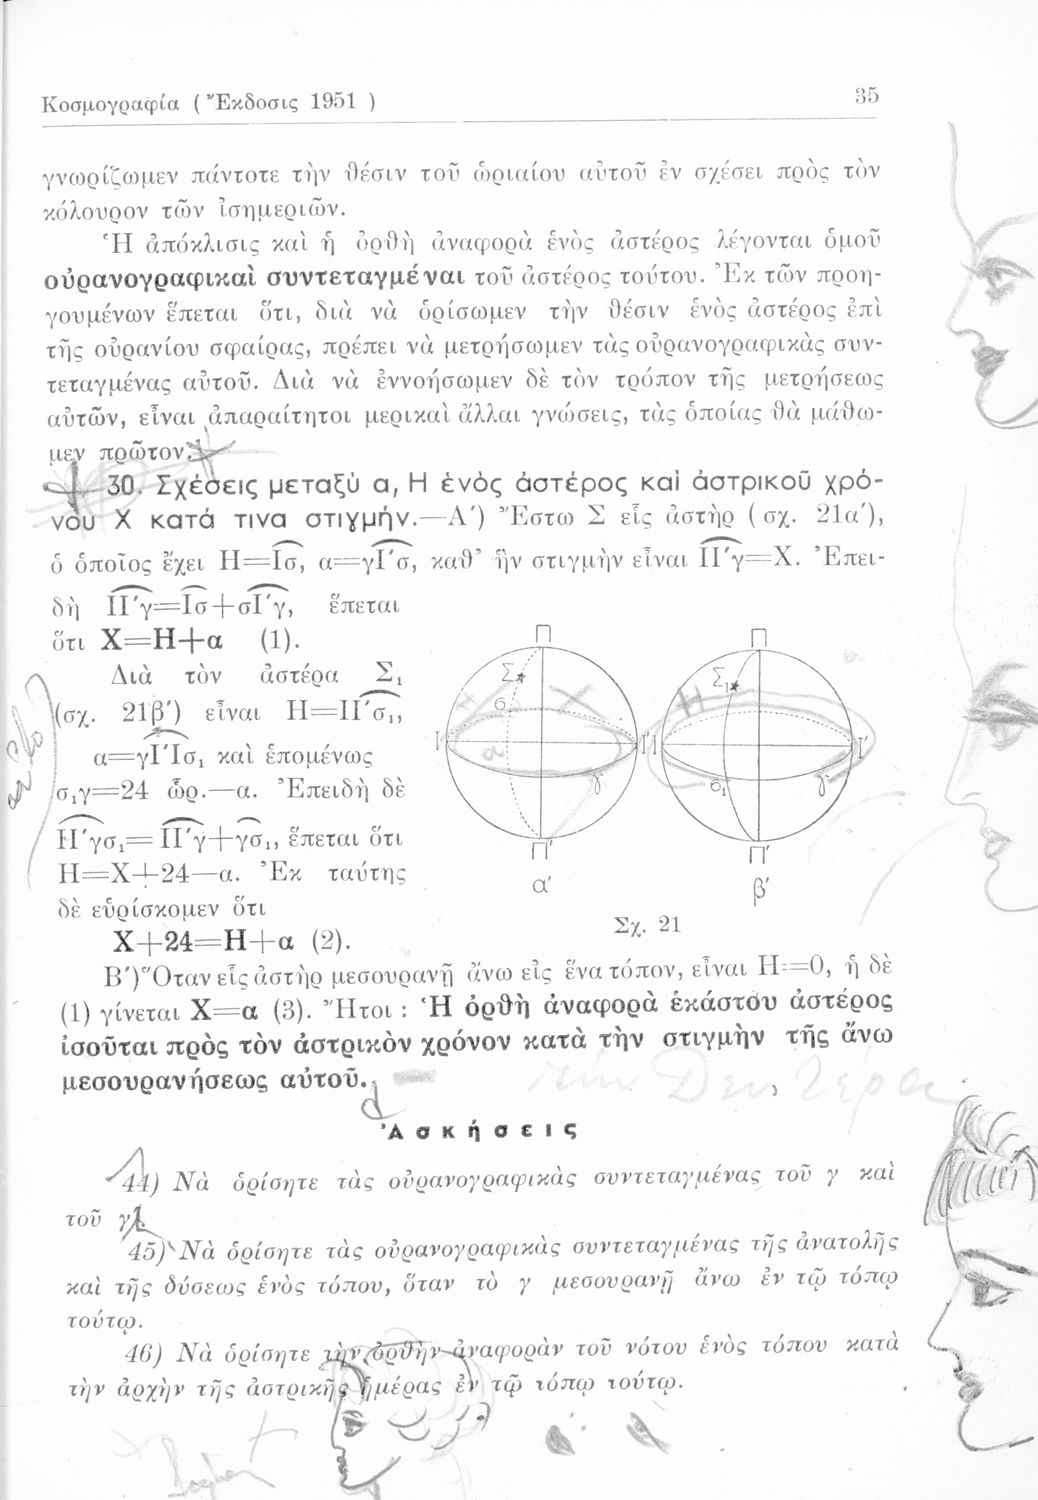 Κοσμογραφία ( Ἔκδοσις 1951 )
35
γνωρίζωμεν πάντοτε τὴν θέσιν τοῦ ὡριαίου αὐτοῦ ἐν σχέσει πρὸς τὸν
κόλουρον τῶν ἰσημεριῶν.
Ἡ ἀπόκλισις καὶ ἡ ὀρθὴ ἀναφορὰ ἑνὸς ἀστέρος λέγονται ὁμοῦ
οὐρανογραφικαὶ συντεταγμέναι τοῦ ἀστέρος τούτου. Ἐκ τῶν προη-
γουμένων ἕπεται ὅτι, διὰ νὰ ὁρίσωμεν τὴν θέσιν ἑνὸς ἀστέρος ἐπὶ
τῆς οὐρανίου σφαίρας, πρέπει νὰ μετρήσωμεν τὰς οὐρανογραφικὰς συν-
τεταγμένας αὐτοῦ. Διὰ νὰ ἐννοήσωμεν δὲ τὸν τρόπον τῆς μετρήσεως
αὐτῶν, εἶναι ἀπαραίτητοι μερικαὶ ἄλλαι γνώσεις, τὰς ὁποίας θὰ μάθω-
μεν πρῶτον.
30. Σχέσεις μεταξὺ α, Η ἑνὸς ἀστέρος καὶ ἀστρικοῦ χρό-
νου Χ κατά τινα στιγμήν.—Α') Ἔστω Σ εἷς ἀστὴρ ( σχ. 21α'),
ὁ ὁποῖος ἔχει Η=Ισ, α=γΙ'σ, καθ' ἣν στιγμὴν εἶναι ΙΙ'γ=Χ. Ἐπει-
δὴ ΙΙ'γ=Ισ+σΙ'γ, ἕπεται
ὅτι Χ=Η+α (1).
Διὰ τὸν ἀστέρα Σ₁
(σχ. 21β') εἶναι Η=ΙΙ'σ₁,
α=γΙ'Ισ₁ καὶ ἑπομένως
σ₁γ=24 ὧρ.—α. Ἐπειδὴ δὲ
ΙΙ'γσ₁= ΙΙ'γ+γσ₁, ἕπεται ὅτι
Η=Χ+24—α. Ἐκ ταύτης
δὲ εὑρίσκομεν ὅτι
Χ+24=Η+α (2).
Π Π
Σ Σ₁
σ
Ι Ι' Ι Ι'
γ σ₁ γ
Π' Π'
α' β'
Σχ. 21
Β') Ὅταν εἷς ἀστὴρ μεσουρανῇ ἄνω εἰς ἕνα τόπον, εἶναι Η=0, ἡ δὲ
(1) γίνεται Χ=α (3). Ἤτοι : Ἡ ὀρθὴ ἀναφορὰ ἑκάστου ἀστέρος
ἰσοῦται πρὸς τὸν ἀστρικὸν χρόνον κατὰ τὴν στιγμὴν τῆς ἄνω
μεσουρανήσεως αὐτοῦ.
Ἀσκήσεις
44) Νὰ ὁρίσητε τὰς οὐρανογραφικὰς συντεταγμένας τοῦ γ καὶ
τοῦ γ'.
45) Νὰ ὁρίσητε τὰς οὐρανογραφικὰς συντεταγμένας τῆς ἀνατολῆς
καὶ τῆς δύσεως ἑνὸς τόπου, ὅταν τὸ γ μεσουρανῇ ἄνω ἐν τῷ τόπῳ
τούτῳ.
46) Νὰ ὁρίσητε τὴν ὀρθὴν ἀναφορὰν τοῦ νότου ἑνὸς τόπου κατὰ
τὴν ἀρχὴν τῆς ἀστρικῆς ἡμέρας ἐν τῷ τόπῳ τούτῳ.